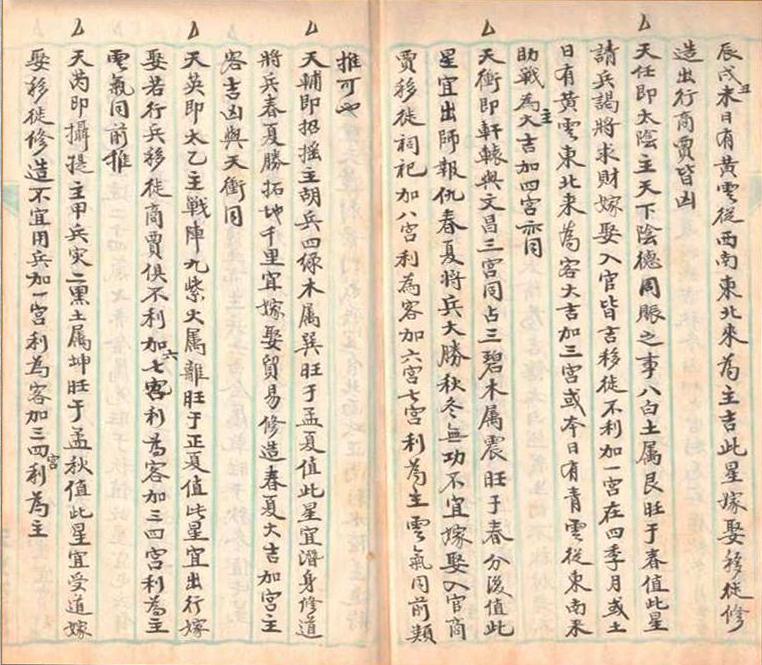 辰戌丑未日有黃雲從西南東北來為主吉此星嫁娶移徙修
造出行商賈皆凶
天任即太陰主天下陰德周賑之事八白土属艮旺于春值此星
請兵謁將求財嫁娶入官皆吉移徙不利加一宮在四季月或土
日有黃雲東北来為客大吉加三宮或本日有青雲從東南来
助戦為主大吉加四宮亦同
天衝即軒轅與文昌三宮同占三碧木属震旺于春分後值此
星宜出師報仇春夏將兵大勝秋冬無功不宜嫁娶入官商
賈移徙祠祀加八宮利為客加六宮七宮利為主雲氣同前類
推可也
天輔即招搖主胡兵四綠木属巽旺于孟夏值此星宜潛身修道
將兵春夏勝拓地千里宜嫁娶貿易修造春夏大吉加宮主
客吉凶與天衝同
天英即太乙主戦陣九紫火属離旺于正夏值此星宜出行嫁
娶若行兵移徙商賈俱不利加七六宮利為客加三四宮利為主
雲氣同前推
天芮即攝提主甲兵灾二黑土属坤旺于孟秋值此星宜受道嫁
娶移徙修造不宜用兵加一宮利為客加三四宮利為主